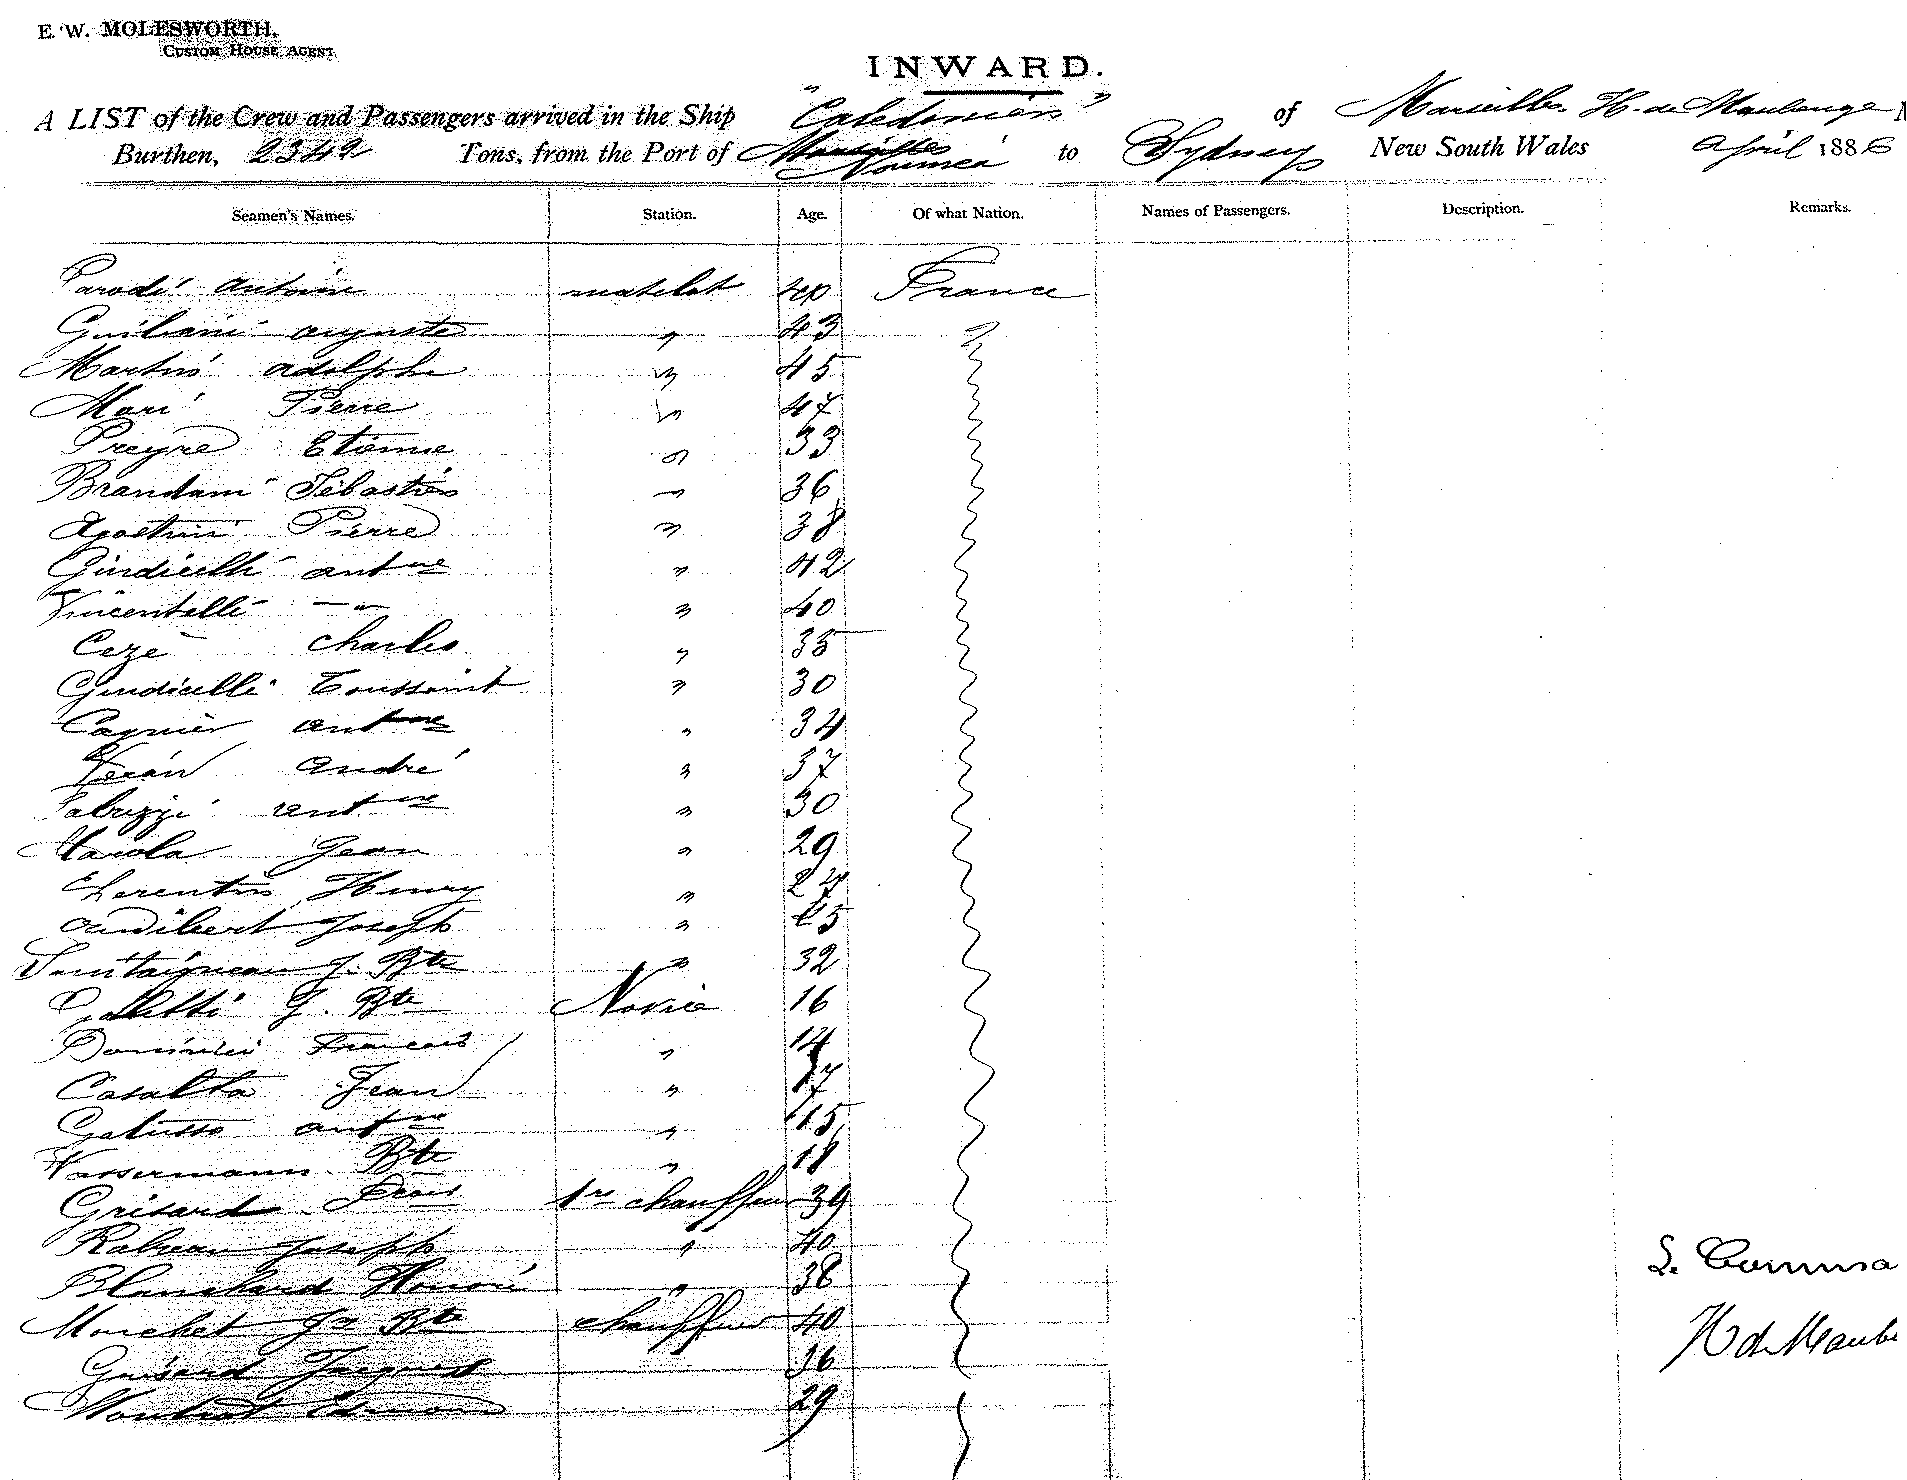 E. W. MOLESWORTH,
CUSTOM HOUSE AGENT
INWARD.
A LIST of the Crew and Passengers arrived in the Ship "Caledonien" of Marseilles H. de Maubenge
Burthen, 2342 Tons, from the Port of Marseilles Noumea to Sydney New South Wales April 1886
Seamen's Names. Station. Age. Of what Nation. Names of Passengers. Description. Remarks.
Parodi Antoine matelot 40 France
Guiliani auguste " 43 "
Martini adolphe " 45
Mari Pierre " 47
Preyre Etienne " 33
Brandani Sébastien " 36
Agostini Pierre " 38
Giudicelli ant ne " 42
Vincentelli — " " 40
Cezé Charles " 35
Giudicelli Toussaint " 30
Cagnier ant ne " 34
Veran André " 37
Fabrizzi ant ne " 30
Marola Jean " 29
Lorentin Henry " 27
Audibert Joseph " 25
J. Bte " 32
Galletti J. Bte Novice 16
Dominici Francois " 14
Casalta Jean " 17
Gatusso ant ne " 15
Wassermann Bte " 18
Grisard 1re chauffeur 39
Joseph " 40
Blanchard Honoré " 38
Mouchet Jn Bte chauffeur 40
Grisard Jacques 36
29
H de Maube